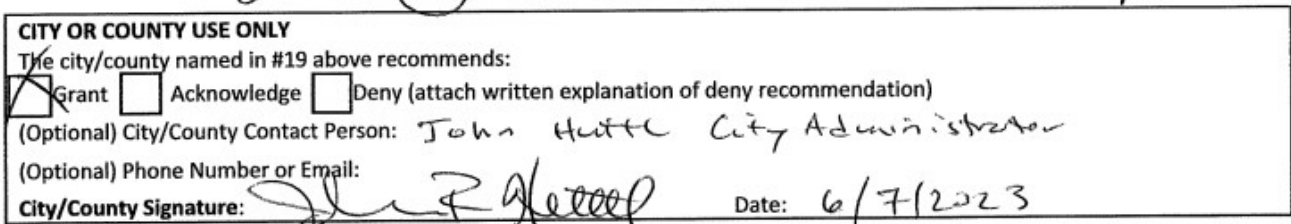 CITY OR COUNTY USE ONLY
The city/county named in #19 above recommends:
Grant Acknowledge Deny (attach written explanation of deny recommendation)
(Optional) City/County Contact Person: John Huttl City Administrator
(Optional) Phone Number or Email:
City/County Signature: John R Huttl Date: 6/7/2023